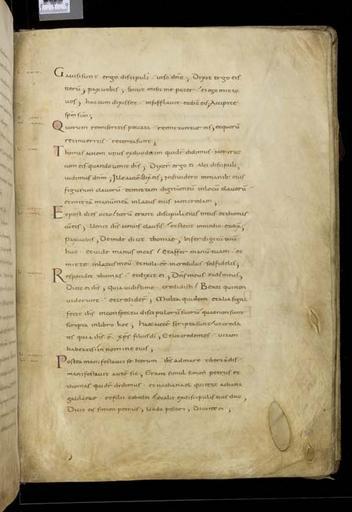 Gauisi sunt ergo discipuli uiso dno, Dixit ergo eis
iterum, pax uobis, sicut misit me pater et ego mitto
uos, haec cum dixisset insufflauit et dicit eis, Accipite
spm scm,
Quorum remiseritis peccata remittuntur eis, et quorum
retinueritis retenta sunt,
Thomas autem unus ex duodecim qui dr didimus non erat
cum eis quando uenit ihs, Dixer ergo ei alii discipuli,
uidimus dnm, Ille autem dixit eis, nisi uidero in manibus eius
figuram clauorum et mittam digitum in locum clauorum
et mittam manum in latus eius non credam,
Et post dies octo iterum erant discipuli eius intus et thomas
cum eis, Uenit ihs ianuis clausis et stetit in medio et dixit,
pax uobis, Deinde dicit thomae, Infer digitum tuum
huc et uide manus meas, et affer manum tuam et
mitte in latus meum et noli esse incredulus sed fidelis,
Respondit thomas et dixit ei, Dns meus et ds meus,
Dicit ei ihs, Quia uidisti me credidisti, Beati qui non
uiderunt et crediderunt, Multa quidem et alia signa
fecit ihs in conspectu discipulorum suorum quae non sunt
scripta in libro hoc, Haec autem scripta sunt ut creda
tis quia ihs est xps filius di, Et ut credentes uitam
habeatis in nomine eius,
Postea manifestauit se iterum ihs ad mare tiberiadis
manifestauit autem sic, Erant simul simon petrus et
thomas qui dr didimus et nathanahel qui erat a chana
galileae et filii zebedei et alii ex discipulis eius duo,
Dicit eis simon petrus, Uado piscari, Dicunt ei,